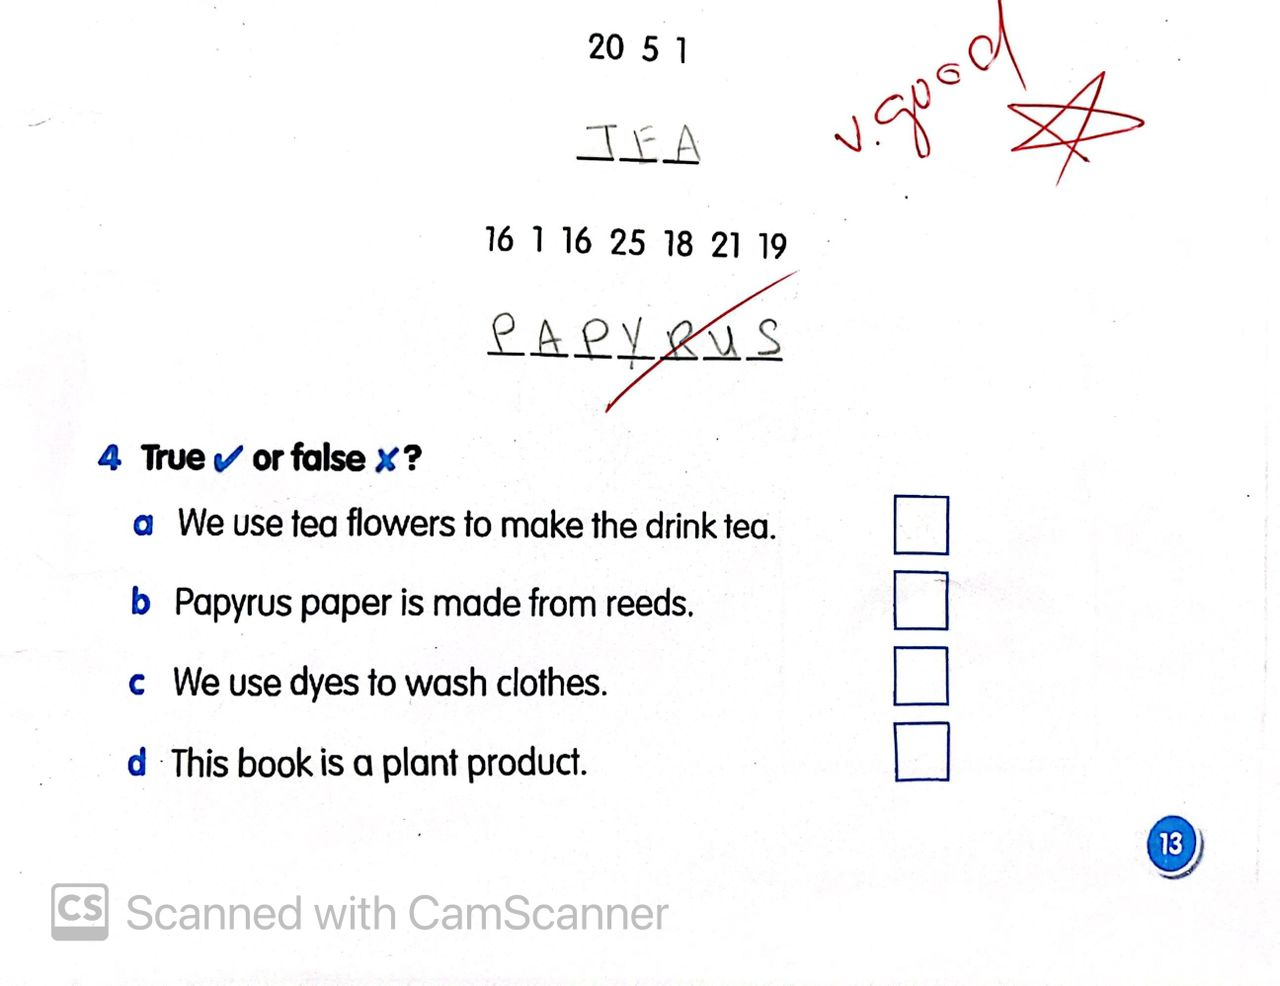 20 5 1
TEA
v. good
16 1 16 25 18 21 19
PAPYRUS
4 True ✔ or false ✘?
a We use tea flowers to make the drink tea.
b Papyrus paper is made from reeds.
c We use dyes to wash clothes.
d This book is a plant product.
13
CS Scanned with CamScanner